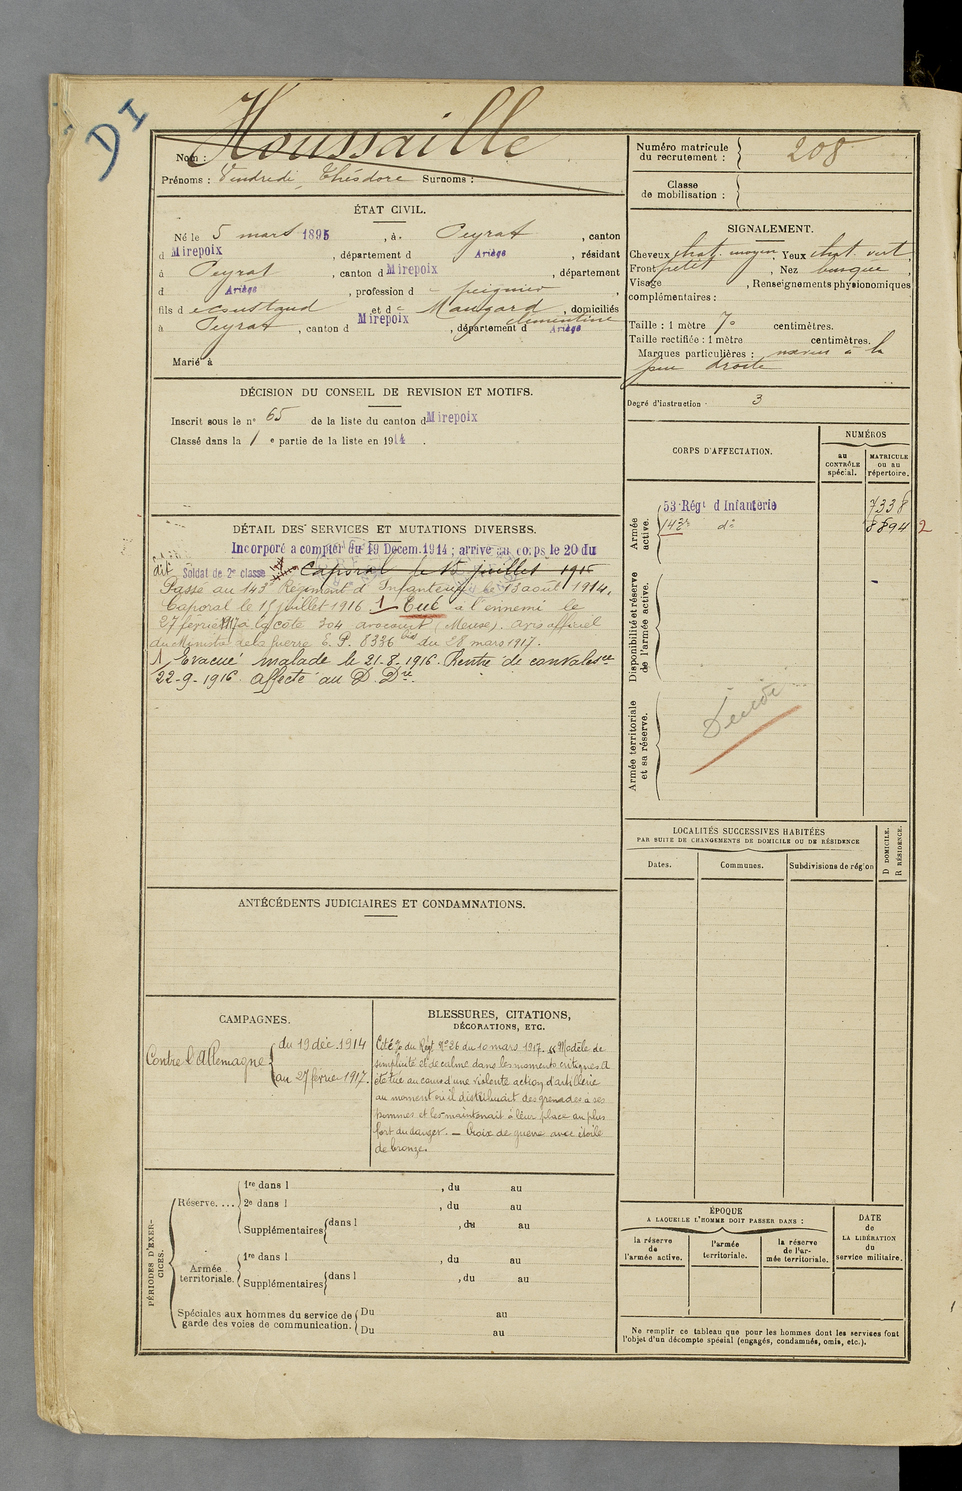 DI
Nom : Houssaille
Prénoms : Vendredi Théodore Surnoms :
ÉTAT CIVIL.
Né le 5 mars 1895, à Peyrat, canton
d Mirepoix, département d Ariège, résidant
à Peyrat, canton d Mirepoix, département
d Ariège, profession d peignier,
fils d et de Maugard Clémentine, domiciliés
à Peyrat, canton d Mirepoix, département d Ariège
Marié à
DÉCISION DU CONSEIL DE REVISION ET MOTIFS.
Inscrit sous le n° 65 de la liste du canton d Mirepoix
Classé dans la 1 e partie de la liste en 1914.
DÉTAIL DES SERVICES ET MUTATIONS DIVERSES.
Incorporé a compter du 19 Decem. 1914 ; arrivé au corps le 20 du
dit Soldat de 2e classe Caporal le 15 juillet 1916
Passé au 143e Régiment d'Infanterie le 13 août 1914.
Caporal le 15 juillet 1916 1 Tué à l'ennemi le
27 février 1917 à la côte 304 avocourt (Meuse). avis officiel
du Ministre de la Guerre E. P. 8336 bis du 28 mars 1917.
1/ Evacué malade le 21-8-1916. Rentré de convalsce
22-9-1916. Affecté au D. Dre.
ANTÉCÉDENTS JUDICIAIRES ET CONDAMNATIONS.
CAMPAGNES.
Contre l'Allemagne
du 19 déc. 1914
au 27 février 1917.
BLESSURES, CITATIONS,
DÉCORATIONS, ETC.
Cité % du Régt N° 36 du 10 mars 1917. « Modèle de
simplicité et de calme dans les moments critiques. A
été tué au cours d'une violente action d'artillerie
au moment où il distribuait des grenades à ses
hommes et les maintenait à leur place au plus
fort du danger. — Croix de guerre avec étoile
de bronze.
PÉRIODES D'EXERCICES.
Réserve....
1re dans l , du au
2e dans l , du au
Supplémentaires dans l , du au
Armée territoriale.
1re dans l , du au
Supplémentaires dans l , du au
Spéciales aux hommes du service de garde des voies de communication.
Du au
Du au
Numéro matricule
du recrutement : 208
Classe
de mobilisation :
SIGNALEMENT.
Cheveux chat. moyen, Yeux chat. vert,
Front petit, Nez busqué,
Visage , Renseignements physionomiques
complémentaires :
Taille : 1 mètre 70 centimètres.
Taille rectifiée : 1 mètre centimètres.
Marques particulières : nævus à la
joue droite
Degré d'instruction : 3
CORPS D'AFFECTATION.
NUMÉROS
au CONTRÔLE spécial.
MATRICULE ou au répertoire.
Armée active.
53e Régt d'Infanterie 7338
143e do 8594 2
Disponibilité et réserve de l'armée active.
Armée territoriale et sa réserve.
LOCALITÉS SUCCESSIVES HABITÉES
PAR SUITE DE CHANGEMENTS DE DOMICILE OU DE RÉSIDENCE
Dates.
Communes.
Subdivisions de région
D DOMICILE.
R RÉSIDENCE.
ÉPOQUE
A LAQUELLE L'HOMME DOIT PASSER DANS :
la réserve de l'armée active.
l'armée territoriale.
la réserve de l'armée territoriale.
DATE
de
LA LIBÉRATION
du
service militaire.
Ne remplir ce tableau que pour les hommes dont les services font
l'objet d'un décompte spécial (engagés, condamnés, omis, etc.).